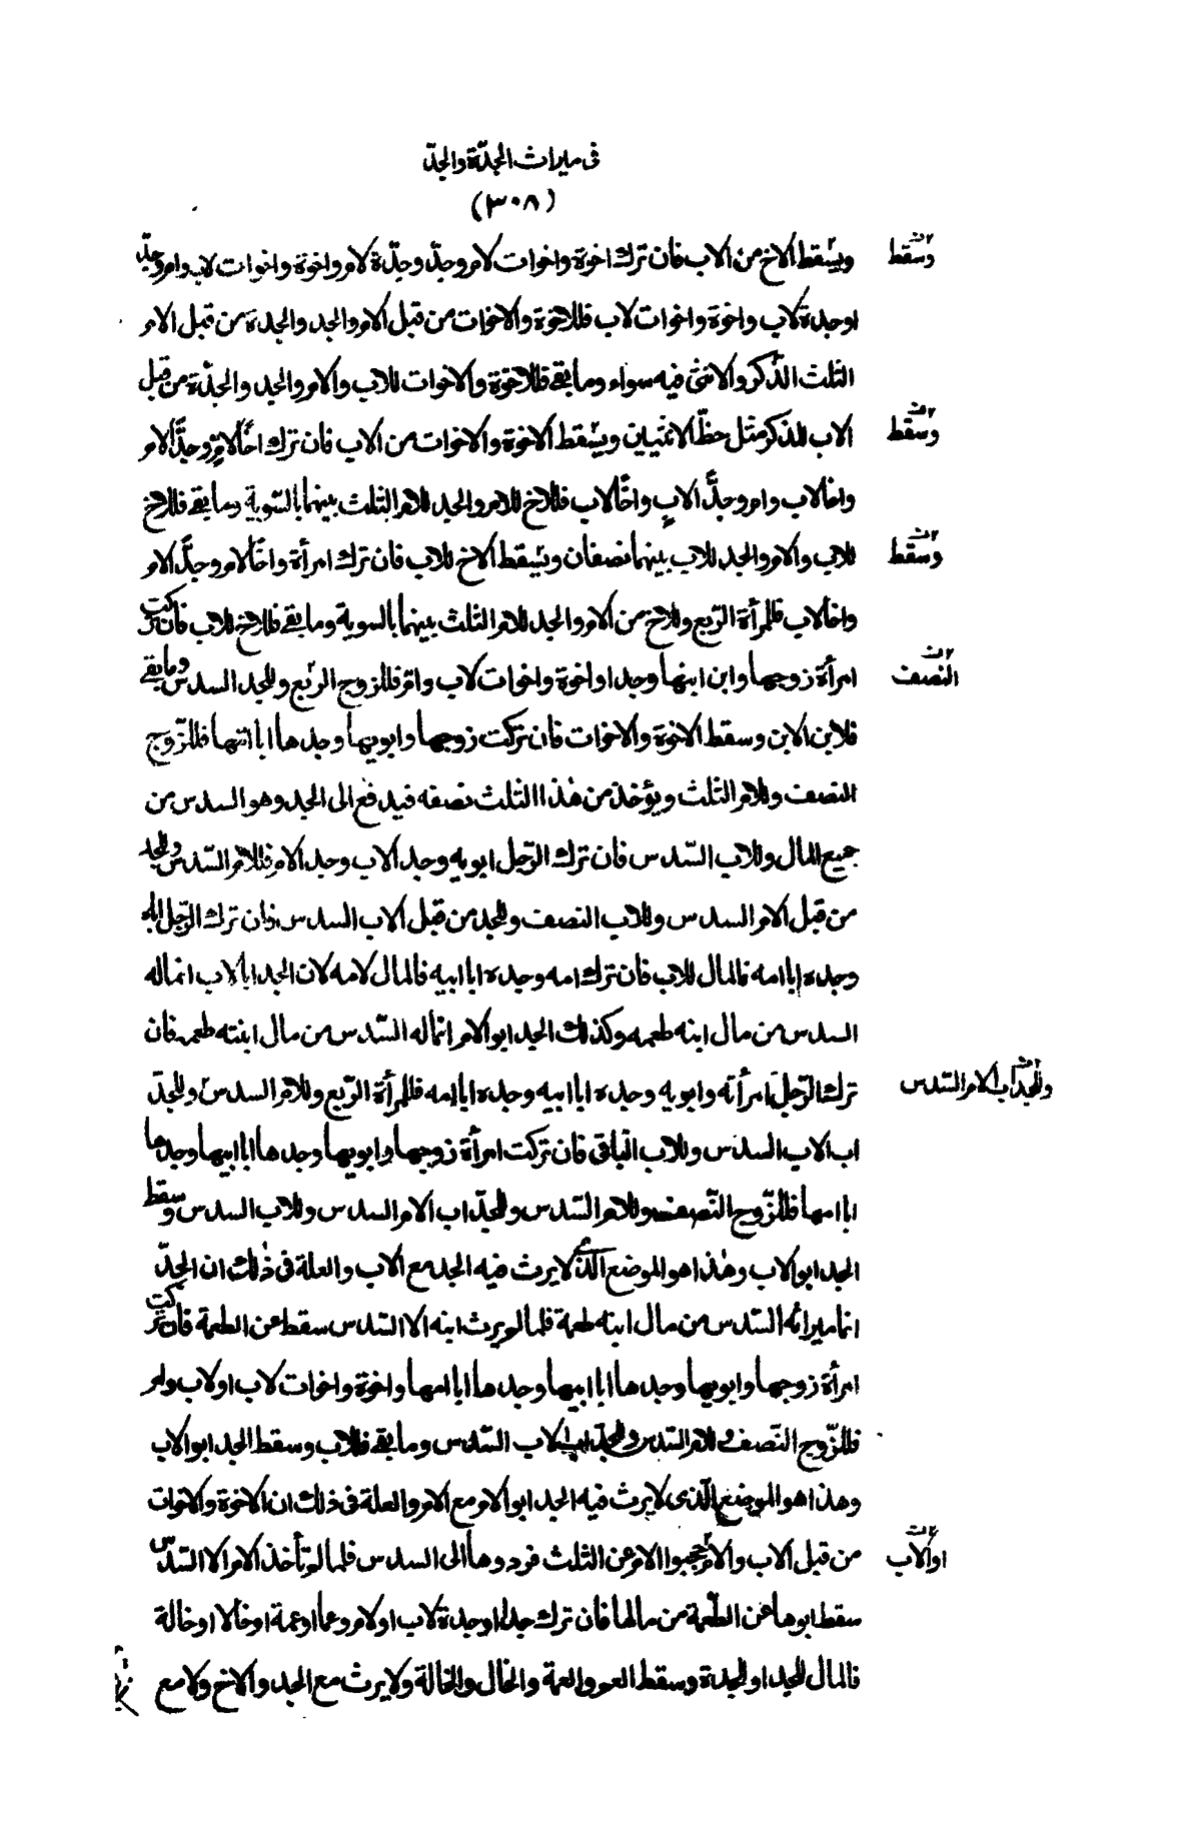 فى ميراث الجدّة والجدّ
(٣٠٨)
ويسقط الاخ من الاب فان ترك اخوة واخوات لام وجدّ وجدّة لام واخوة واخوات لاب وام وجدّ
وسقط
اوجدة لاب واخوة واخوات لاب فللاخوة والاخوات من قبل الام والجد والجدة من قبل الام
الثلث الذّكر والانثى فيه سواء وما بقى فللاخوة والاخوات للاب والام والجد والجدّة من قبل
الاب للذكر مثل حظّ الانثيين ويسقط الاخوة والاخوات من الاب فان ترك اخًا لامٍ وجدًّا لام
وسقط
واخا لاب وام وجدًّا لابٍ واخًا لاب فللاخ للام والجد للام الثلث بينهما بالسّوية وما بقى فللاخ
للاب والام والجد للاب بينهما نصفان ويسقط الاخ للاب فان ترك امرأة واخًا لام وجدًّا لام
وسقط
واخا لاب فللمرأة الرّبع وللاخ من الام والجد للام الثلث بينهما بالسوية وما بقى فللاخ للاب فان تركت
امرأة زوجها وابن ابنها وجدا واخوة واخوات لاب وام فللزوج الربع وللجد السدس وما بقى
النصف
فلابن الابن وسقط الاخوة والاخوات فان تركت زوجها وابويها وجدها ابا امّها فللزّوج
النصف وللام الثلث ويؤخذ من هٰذا الثلث نصفه فيدفع الى الجد وهو السدس من
جميع المال وللاب السّدس فان ترك الرّجل ابويه وجد الاب وجد الام فللام السّدس وللجد
من قبل الام السدس وللاب النصف وللجد من قبل الاب السدس فان ترك الرّجل اباه
وجده ابا امه فالمال للاب فان ترك امه وجده ابا ابيه فالمال لامه لان الجد ابا الاب انما له
السدس من مال ابنه طعمه وكذلك الجد ابو الام انما له السّدس من مال ابنته طعمه فان
ترك الرّجل امرأته وابويه وجده ابا ابيه وجده ابا امه فللمرأة الرّبع وللام السدس وللجدّ
وللجدّ اب الام السّدس
اب الاب السدس وللاب الباقى فان تركت امرأة زوجها وابويها وجدها ابا ابيها وجدها
ابا امها فللزّوج النّصف وللام السّدس وللجدّ اب الام السدس وللاب السدس وسقط
الجد ابو الاب وهٰذا هو الموضع الّذى لا يرث فيه الجد مع الاب والعلة فى ذٰلك ان الجدّ
انما ميراثه السّدس من مال ابنه طعمة فلما لم يرث ابنه الا السّدس سقط عن الطعمة فان تركت
امرأة زوجها وابويها وجدها ابا ابيها وجدها ابا امها واخوة واخوات لاب اولاب وام
فللزّوج النّصف وللام السّدس وللجدّ اب الاب السّدس وما بقى فللاب وسقط الجد ابو الاب
وهذا هو الموضع الّذى لا يرث فيه الجد ابو الام مع الام والعلة فى ذلك ان الاخوة والاخوات
من قبل الاب والام حجبوا الام عن الثلث فردوها الى السدس فلما لم تأخذ الام الا السّدس
او الاب
سقط ابوها عن الطّعمة من مالها فان ترك جدا او جدة لاب او لام وعما او عمة او خالا او خالة
فالمال للجد او للجدة وسقط العم والعمة والخال والخالة ولا يرث مع الجد والاخ ولا مع